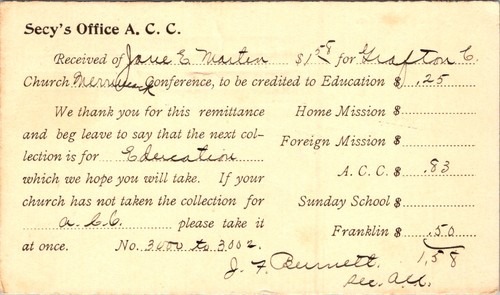 Secy's Office A. C. C.
Received of Jane E Martin $1.58 for Grafton C.
Church Merrimack Conference, to be credited to Education $ .25
We thank you for this remittance Home Mission $
and beg leave to say that the next col-
lection is for Education Foreign Mission $
which we hope you will take. If your A. C. C. $ .83
church has not taken the collection for
a.c.c. please take it Sunday School $
at once. No. 3000 to 3002. Franklin $ .50
J. F. Burnett. 1,58
Sec. A.C.C.